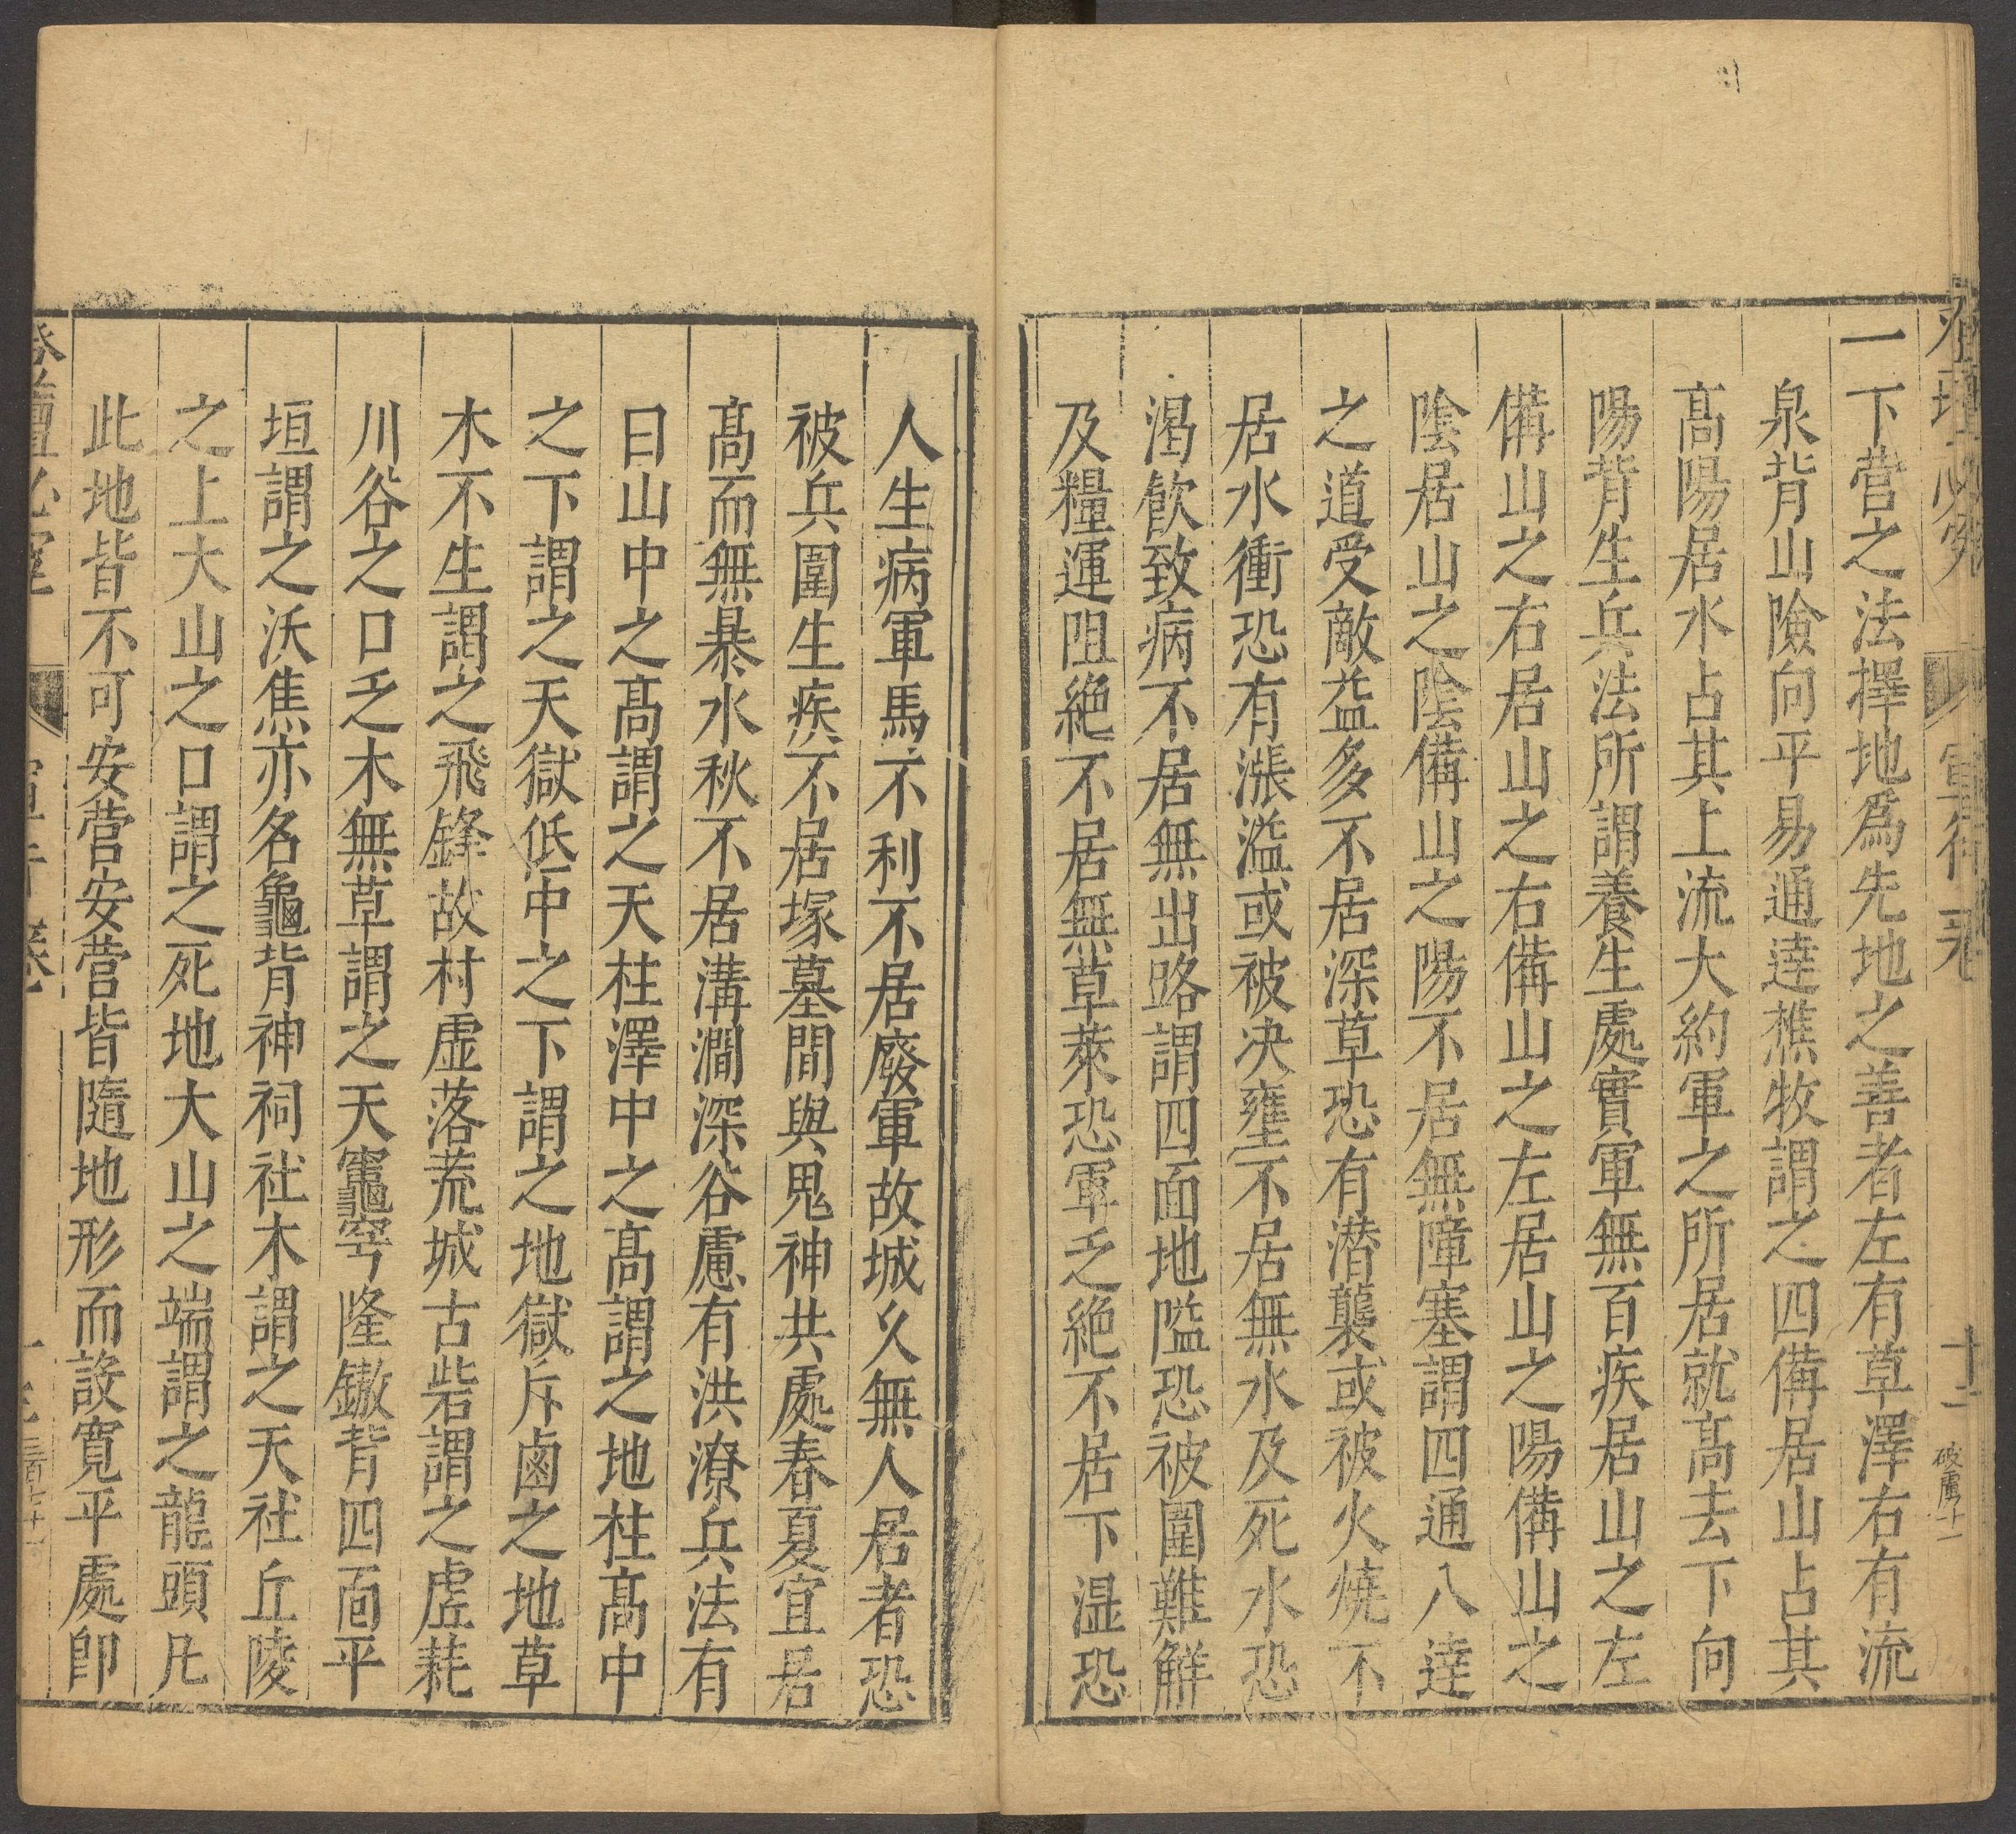 一下营之法擇地爲先地之善者左有草澤右有流
泉背山險向平易通達樵牧謂之四備居山占其
髙陽居水占其上流大約軍之所居就髙去下向
陽背生兵法所謂養生處實軍無百疾居山之左
備山之右居山之右備山之左居山之陽備山之
陰居山之陰備山之陽不居無障塞謂四通八達
之道受敵益多不居深草恐有潜襲或被火燒不
居水衝恐有漲溢或被决壅不居無水及死水恐
渴飲致病不居無出路謂四面地隘恐被圍難觧
及糧運阻絶不居無草萊恐軍乏絶不居下湿恐
人生病軍馬不利不居廢軍故城久無人居者恐
被兵圍生疾不居塚墓間與鬼神共處春夏宜居
髙而無暴水秋不居溝澗深谷慮有洪潦兵法有
曰山中之髙謂之天柱澤中之髙謂之地柱髙中
之下謂之天獄低中之下謂之地獄斥鹵之地草
木不生謂之飛鋒故村虚落荒城古砦謂之虚耗
川谷之口乏木無草謂之天竈穹隆鏾背四面平
垣謂之沃焦亦名龜背神祠社木謂之天社丘陵
之上大山之口謂之死地大山之端謂之龍頭凡
此地皆不可安营安营皆隨地形而設寛平處卽